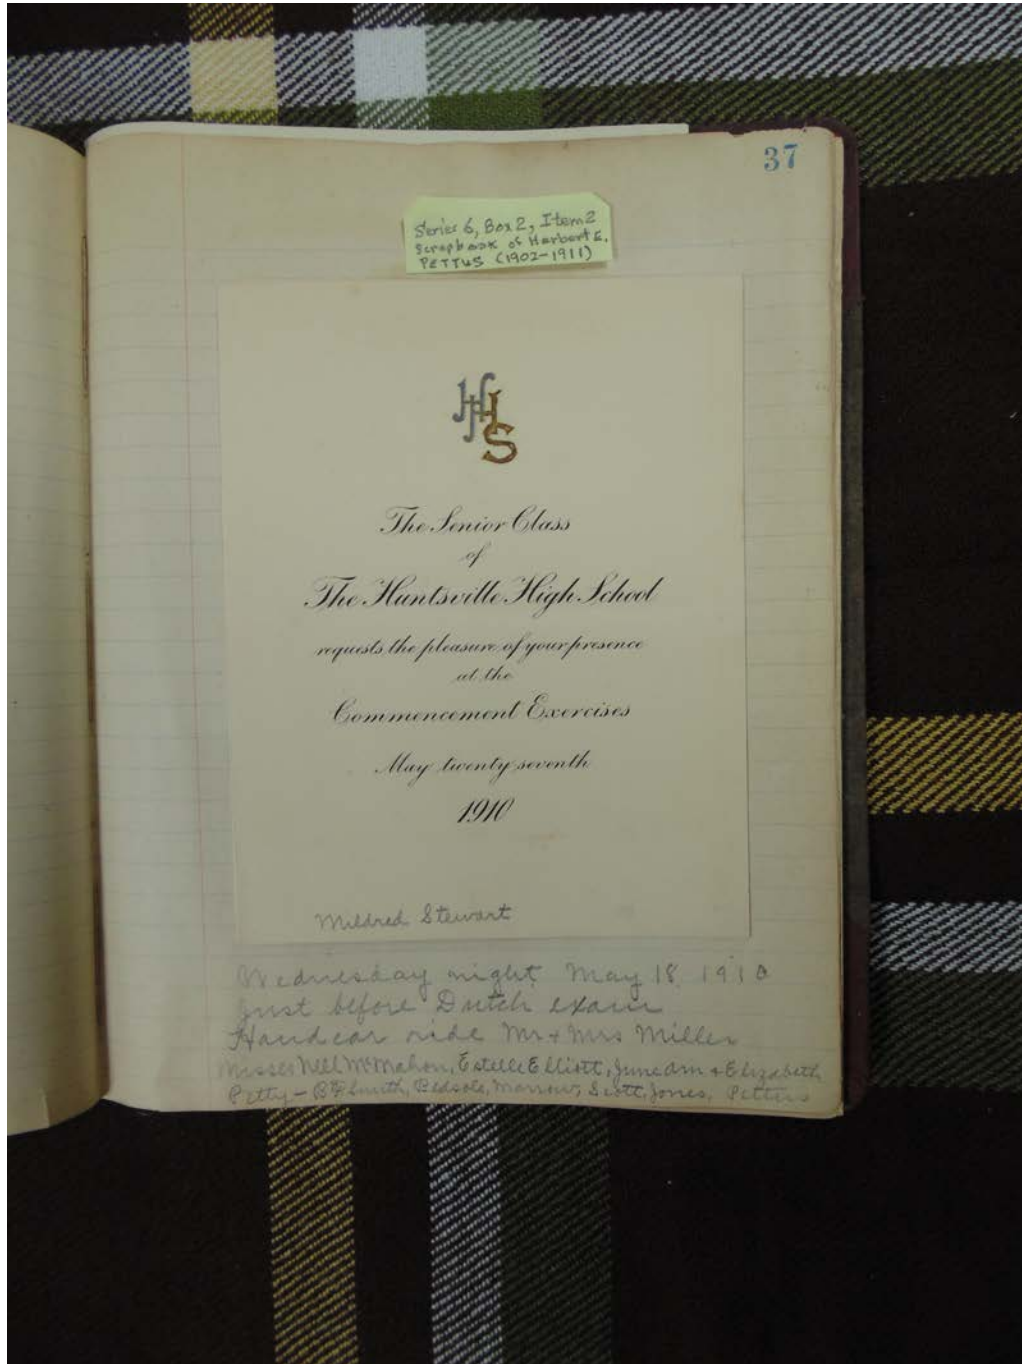 37
Series 6, Box 2, Item 2
Scrapbook of Herbert E.
PETTUS (1902-1911)
HHS
The Senior Class
of
The Huntsville High School
requests the pleasure of your presence
at the
Commencement Exercises
May twenty seventh
1910
Mildred Stewart
Wednesday night May 18, 1910
Just before Dutch exam
Hand car ride Mr + Mrs Miller
Misses Nell McMahon, Estelle Elliott, June + Elizabeth
Petty - Smith, Bedsole, Morrow, Scott, Jones, Pettus